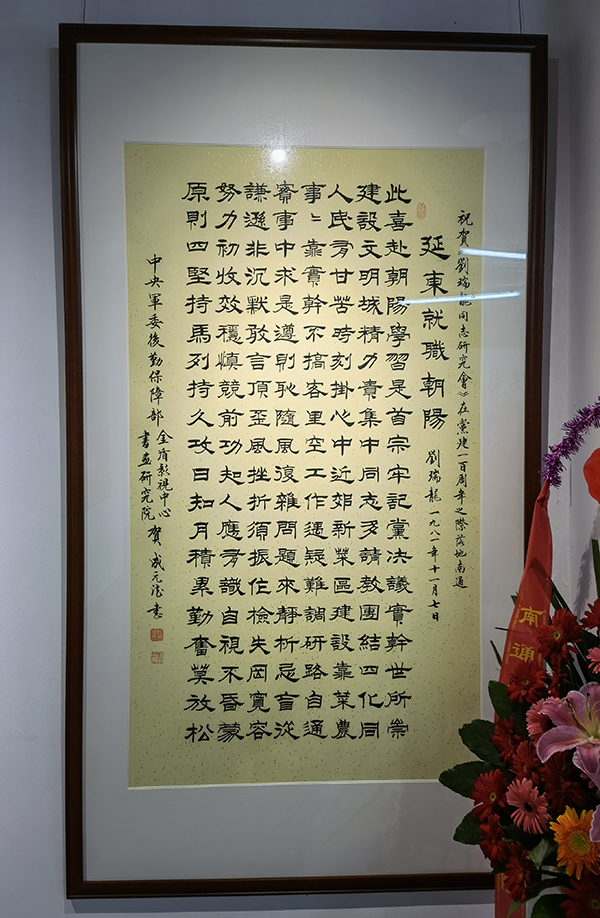 祝賀《劉瑞龍同志研究會》在黨建一百周年之際落地南通
延東就職朝陽 劉瑞龍 一九八一年十一月七日
此喜赴朝陽學習是首宗牢記黨決議實幹世所崇
建設文明城精力責集中同志多請教團結四化同
人民有甘苦時刻掛心中近郊新菜區建設靠菜農
事〻靠實幹不搞客里空工作遇疑難調研路自通
實事中求是遵則恥隨風復雜問題來靜析忌盲從
謙遜非沉默敢言頂歪風挫折須振作檢失罔寬容
努力初收效穩慎競前功知人應有識自視不昏蒙
原則四堅持馬列持久攻日知月積累勤奮莫放松
中央軍委後勤保障部
金盾影視中心
書畫研究院
賀 成元 書
南通